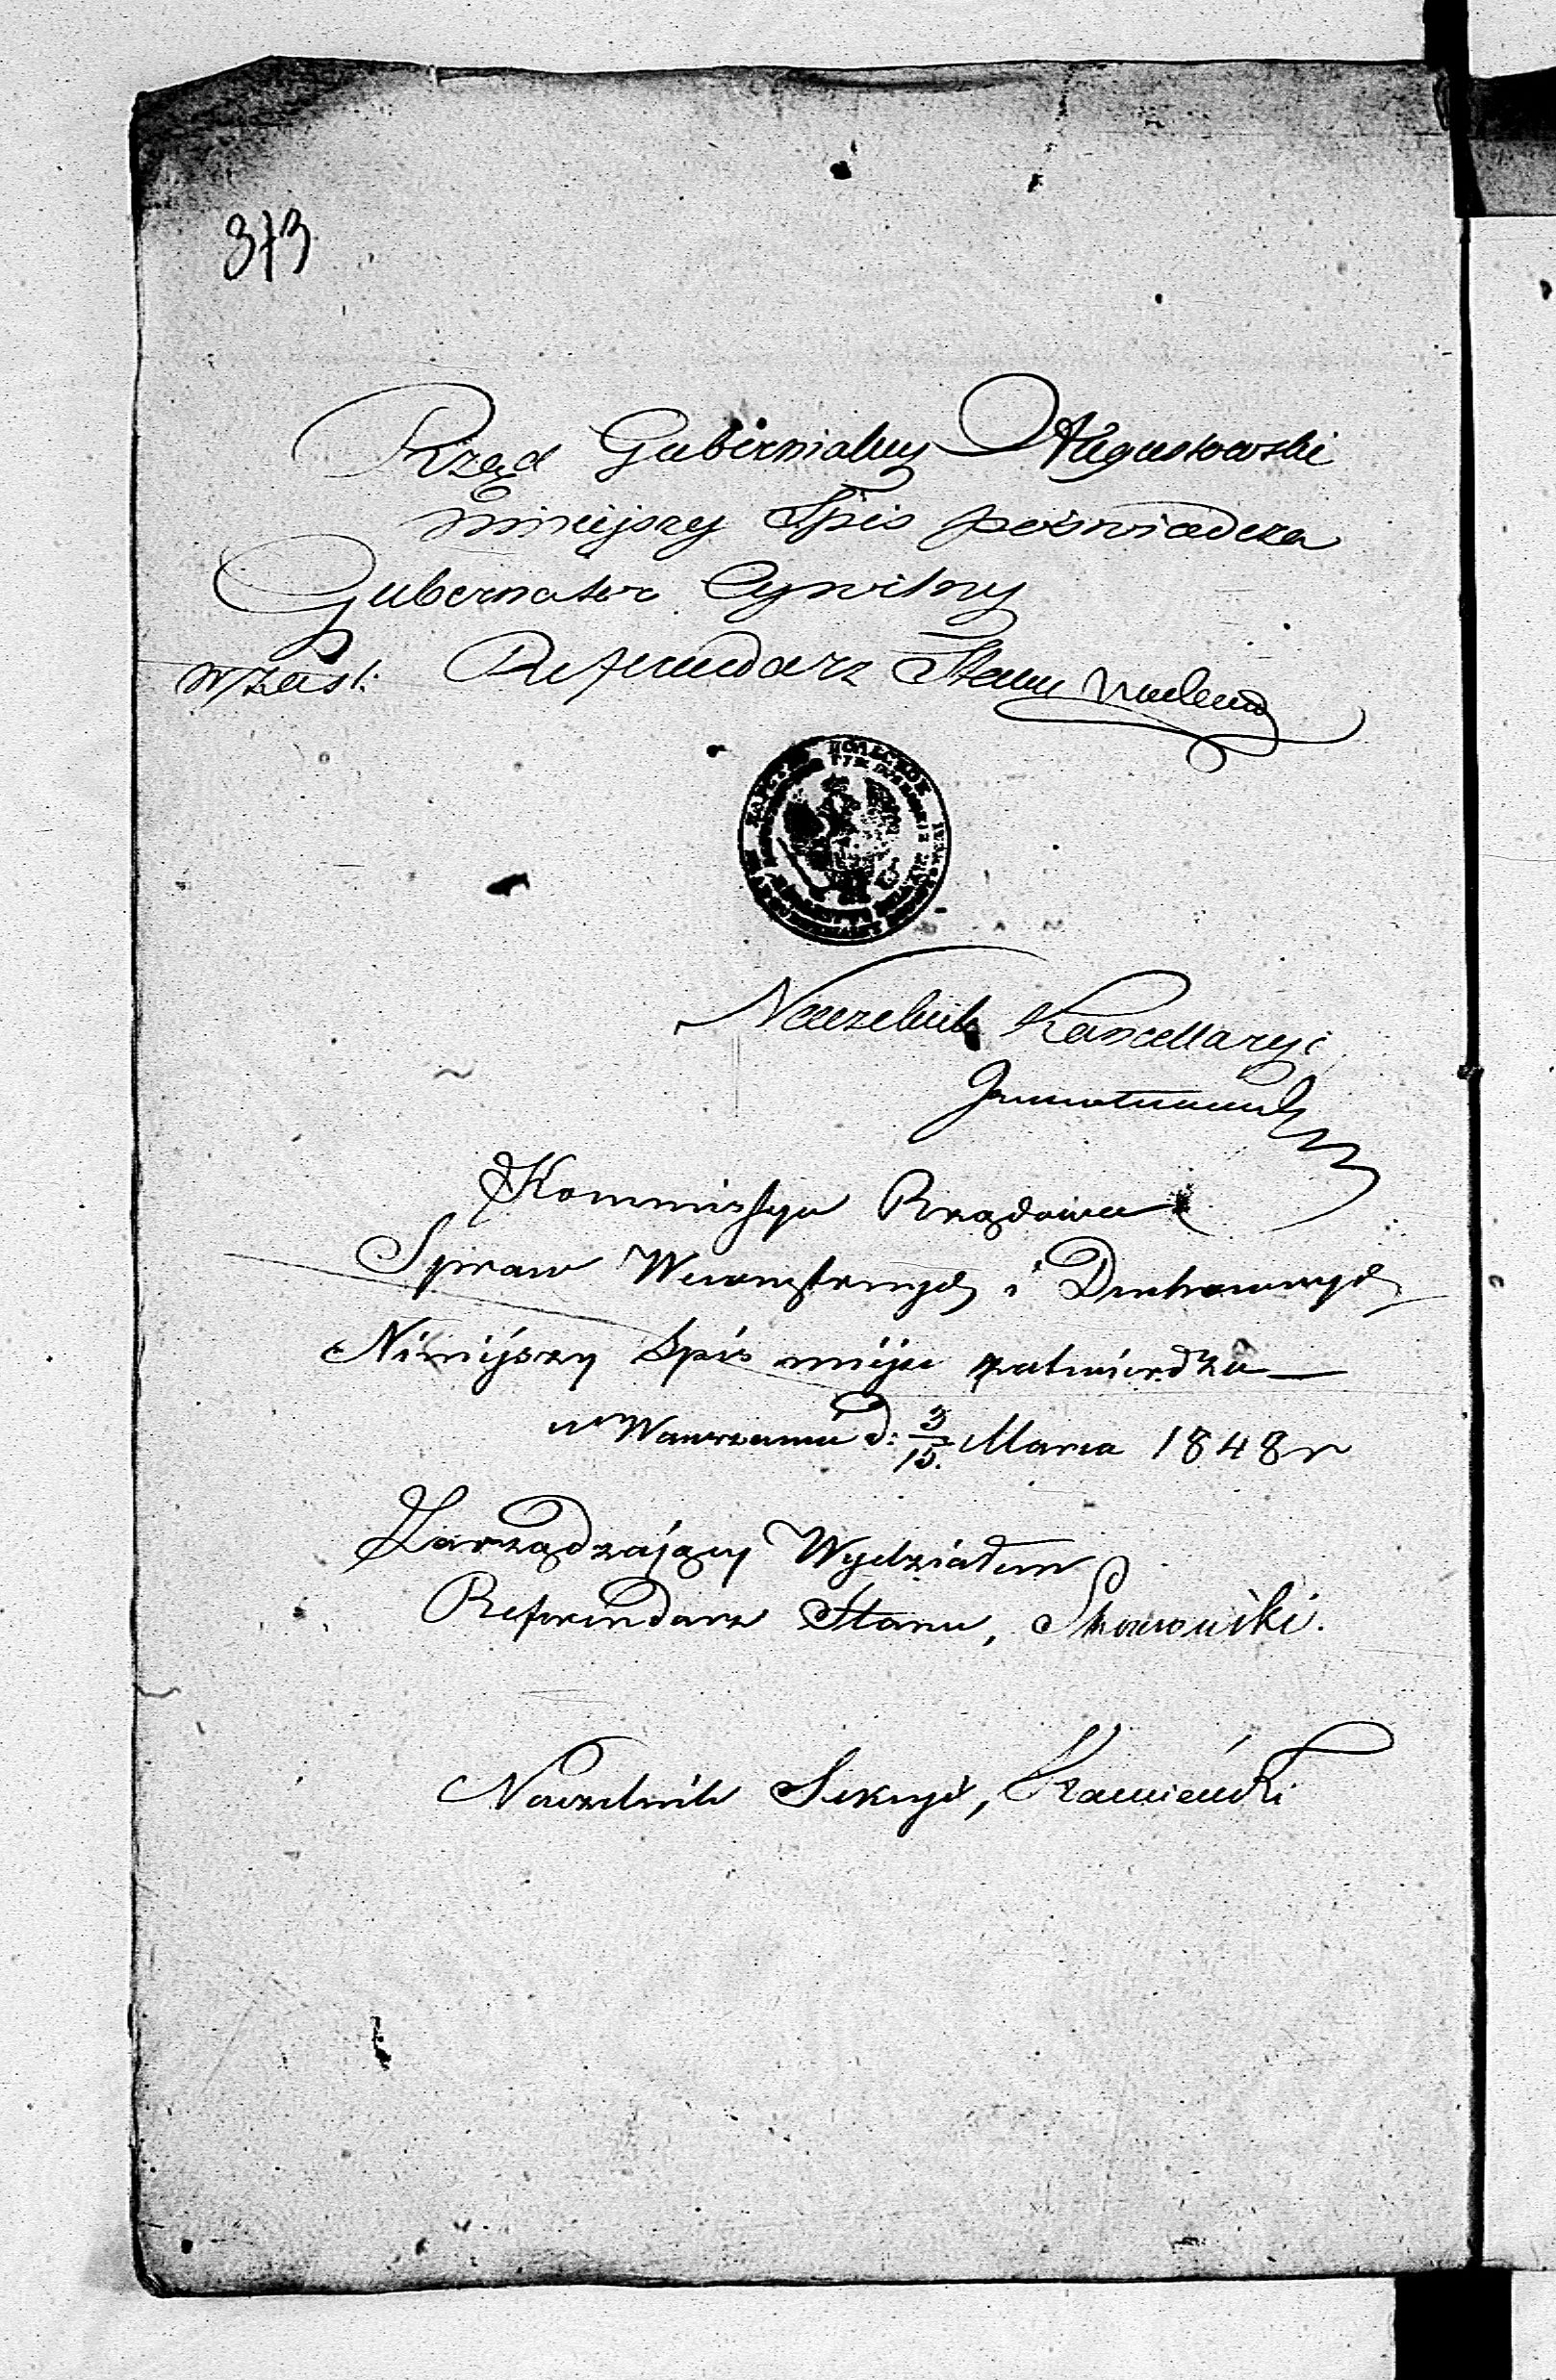 373
Rząd Gubernialny Augustowski
niniejszy Spis poświadcza
Gubernator Cywilny
w zast: Referendarz Stanu
ЦАРСТВО ПОЛЬСКОЕ
Naczelnik Kancellaryi
Kommissya Rządowa
Spraw Wewnętrznych i Duchownych
Niniejszy Spis miejsc zatwierdza —
w Warszawie d: 3/15 Marca 1848 r
Zarządzający Wydziałem
Referendarz Stanu,
Naczelnik Sekcyi, Kamieński